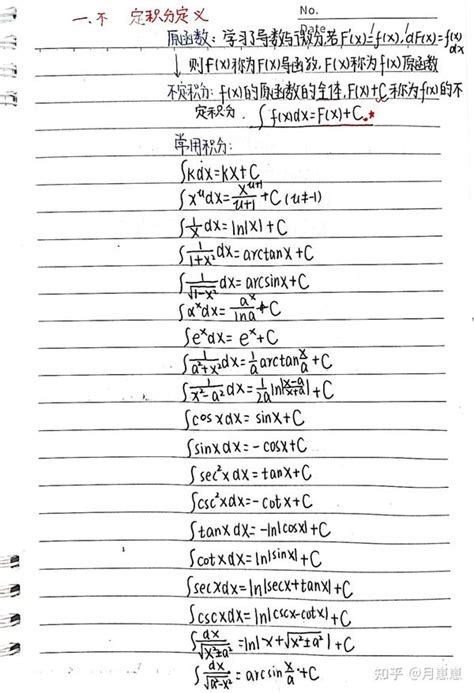 一、不 定积分定义
No.
Date
原函数：学习了导数与微分若F'(x)=f(x),dF(x)=f(x)dx
则f(x)称为F(x)导函数,F(x)称为f(x)原函数
不定积分：f(x)的原函数的全体,F(x)+C称为f(x)的不
定积分. ∫f(x)dx=F(x)+C.
常用积分：
∫kdx=kx+C
∫x^u dx=x^(u+1)/(u+1)+C(u≠-1)
∫1/x dx=ln|x|+C
∫1/(1+x²)dx=arctanx+C
∫1/√(1-x²)dx=arcsinx+C
∫a^x dx=a^x/lna+C
∫e^x dx=e^x+C
∫1/(a²+x²)dx=1/a arctan x/a+C
∫1/(x²-a²)dx=1/2a ln|(x-a)/(x+a)|+C
∫cosxdx=sinx+C
∫sinxdx=-cosx+C
∫sec²xdx=tanx+C
∫csc²xdx=-cotx+C
∫tanxdx=-ln|cosx|+C
∫cotxdx=ln|sinx|+C
∫secxdx=ln|secx+tanx|+C
∫cscxdx=ln|cscx-cotx|+C
∫dx/√(x²±a²)=ln|x+√(x²±a²)|+C
∫dx/√(a²-x²)=arcsin x/a+C
知乎 @月崽崽